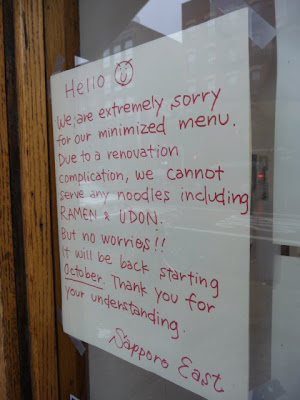 Hello
We are extremely sorry
for our minimized menu.
Due to a renovation
complication, we cannot
serve any noodles including
RAMEN & UDON.
But no worries!!
It will be back starting
October. Thank you for
your understanding.
Sapporo East